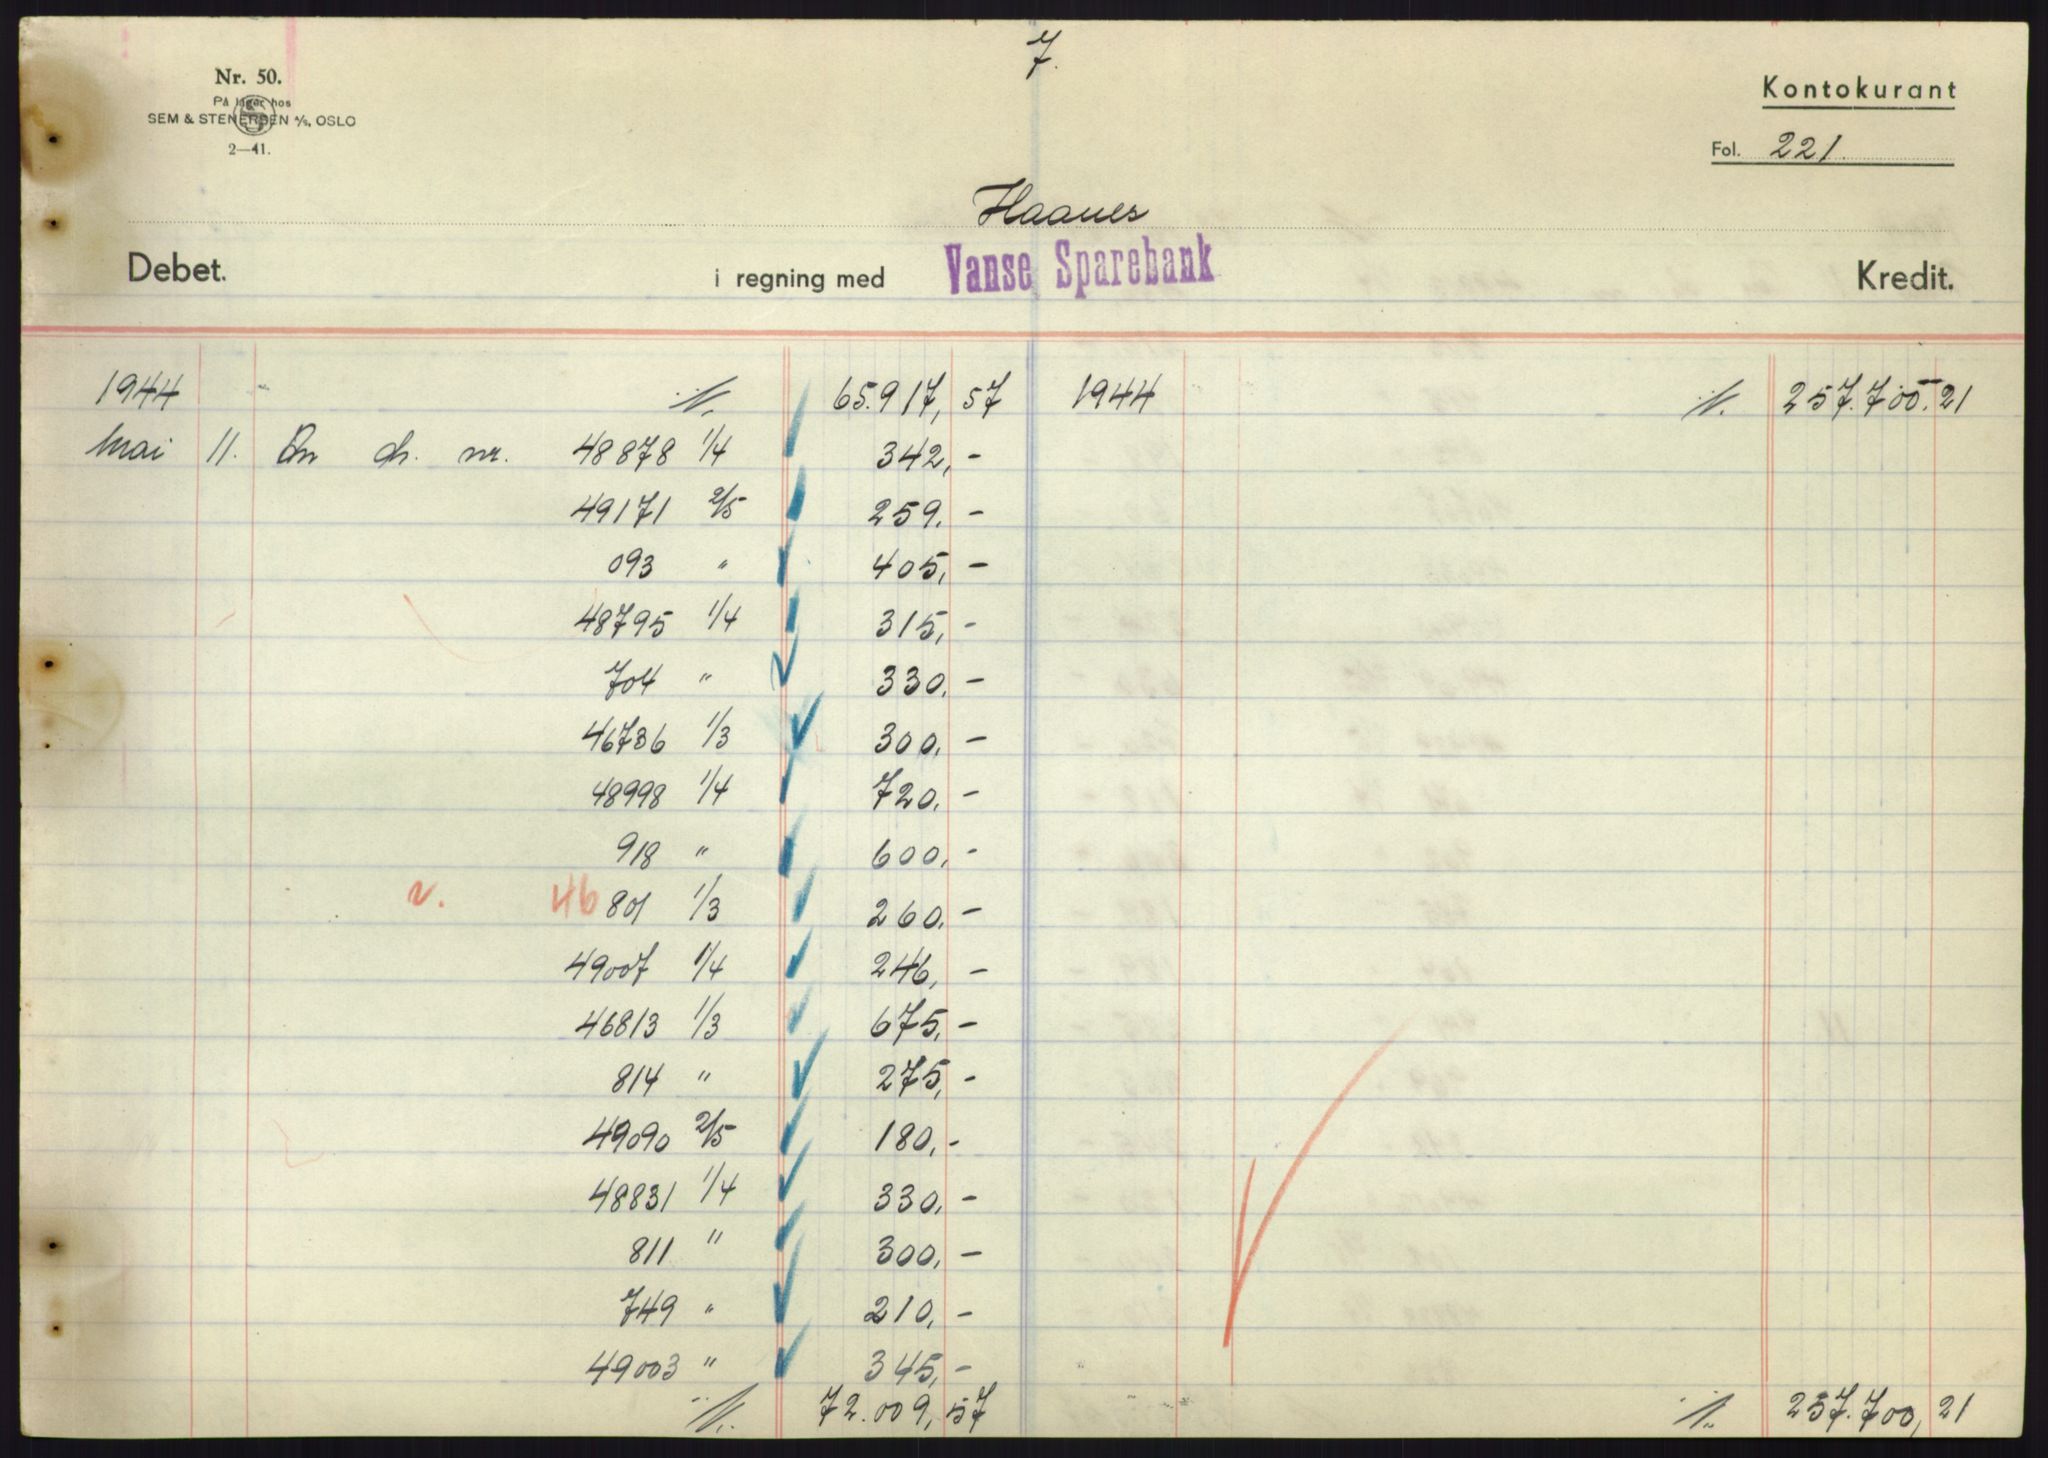 7.
Nr. 50.
På lager hos
SEM & STENERSEN A/S, OSLO
2—41.
Kontokurant
Fol. 221.
Haanes
Debet. i regning med Vanse Sparebank Kredit.
1944 65.917,57 1944 257.700.21
Mai 11. An ch. nr. 48878 1/4 342,-
49171 2/5 259.-
093 " 405,-
48795 1/4 315,-
704 " 330.-
46736 1/3 300.-
48998 1/4 720.-
918 " 600.-
v. 46 801 1/3 260.-
49007 1/4 246,-
46813 1/3 675,-
814 " 275,-
49090 2/5 180,-
48831 1/4 330,-
811 " 300,-
749 " 210,-
49003 " 345,-
72.009,57 257.700,21